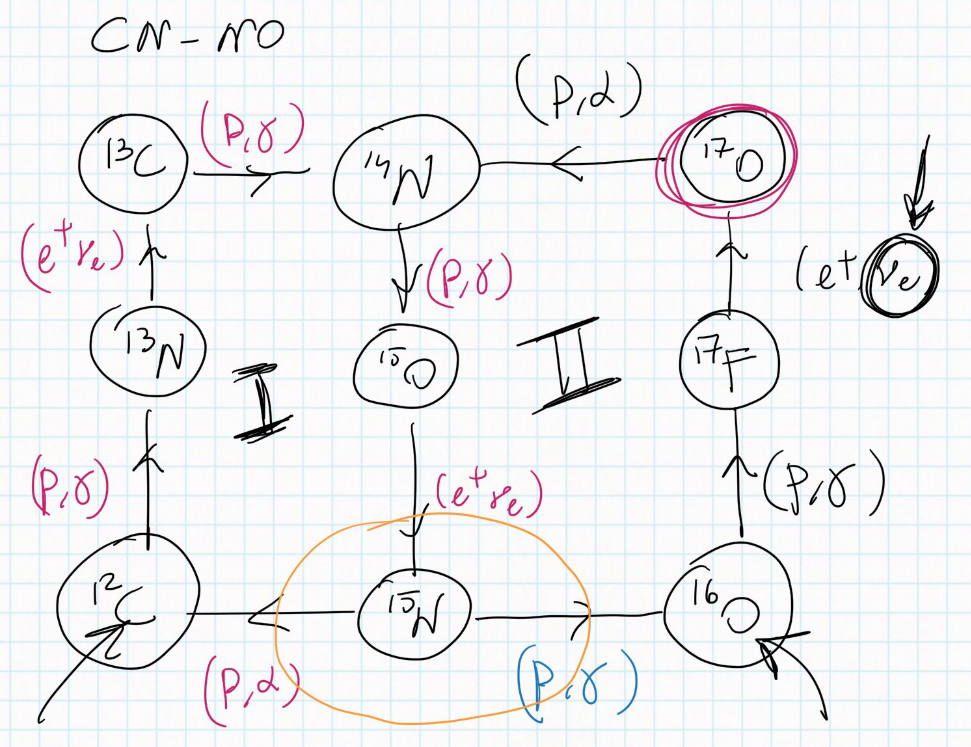 CN-NO
(p,α)
¹³C (p,γ) ¹⁴N ¹⁷O
(e⁺νe) (p,γ) (e⁺,νe)
¹³N I ¹⁵O II ¹⁷F
(p,γ) (e⁺νe) (p,γ)
¹²C ¹⁵N ¹⁶O
(p,α) (p,γ)